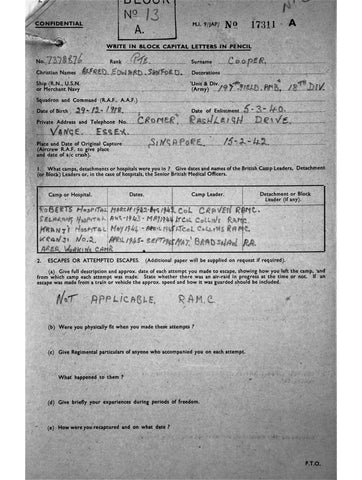 BLOCK
CONFIDENTIAL
No 13
A.
M.I. 9/JAP/ No 17311 - A
WRITE IN BLOCK CAPITAL LETTERS IN PENCIL
No. 7378876 Rank PTE. Surname COOPER.
Christian Names ALFRED. EDWARD. SANFORD. Decorations
Ship (R.N., U.S.N. or Merchant Navy) Unit & Div. (Army) 197TH FIELD. AMB. 18TH DIV.
Squadron and Command (R.A.F., A.A.F.)
Date of Birth 29-12-1918. Date of Enlistment 5-3-40.
Private Address and Telephone No. "CROMER" RASHLEIGH DRIVE,
VANGE. ESSEX.
Place and Date of Original Capture SINGAPORE 15-2-42.
(Aircrew R.A.F. to give place and date of a/c crash).
1. What camps, detachments or hospitals were you in? Give dates and names of the British Camp Leaders, Detachment
(or Block) Leaders or, in the case of hospitals, the Senior British Medical Officers.
Camp or Hospital. Dates. Camp Leader. Detachment or Block Leader (if any).
ROBERTS HOSPITAL MARCH 1942- COL CRAVEN RAMC.
SELARANG HOSPITAL COL COLLINS RAMC.
KRANJI HOSPITAL MAY 1944 - COL COLLINS RAMC.
KRANJI NO.2. APRIL 1945- SEPT 1945 MAJ. BRADSHAW RA.
AREA WORKING CAMP
2. ESCAPES OR ATTEMPTED ESCAPES. (Additional paper will be supplied on request if required).
(a) Give full description and approx. date of each attempt you made to escape, showing how you left the camp, and
from which camp each attempt was made. State whether there was an air-raid in progress at the time or not. If an
escape was made from a train or vehicle the approx. speed and how it was guarded should be included.
NOT APPLICABLE. R.A.M.C
(b) Were you physically fit when you made these attempts?
(c) Give Regimental particulars of anyone who accompanied you on each attempt.
What happened to them?
(d) Give briefly your experiences during periods of freedom.
(e) How were you recaptured and on what date?
P.T.O.